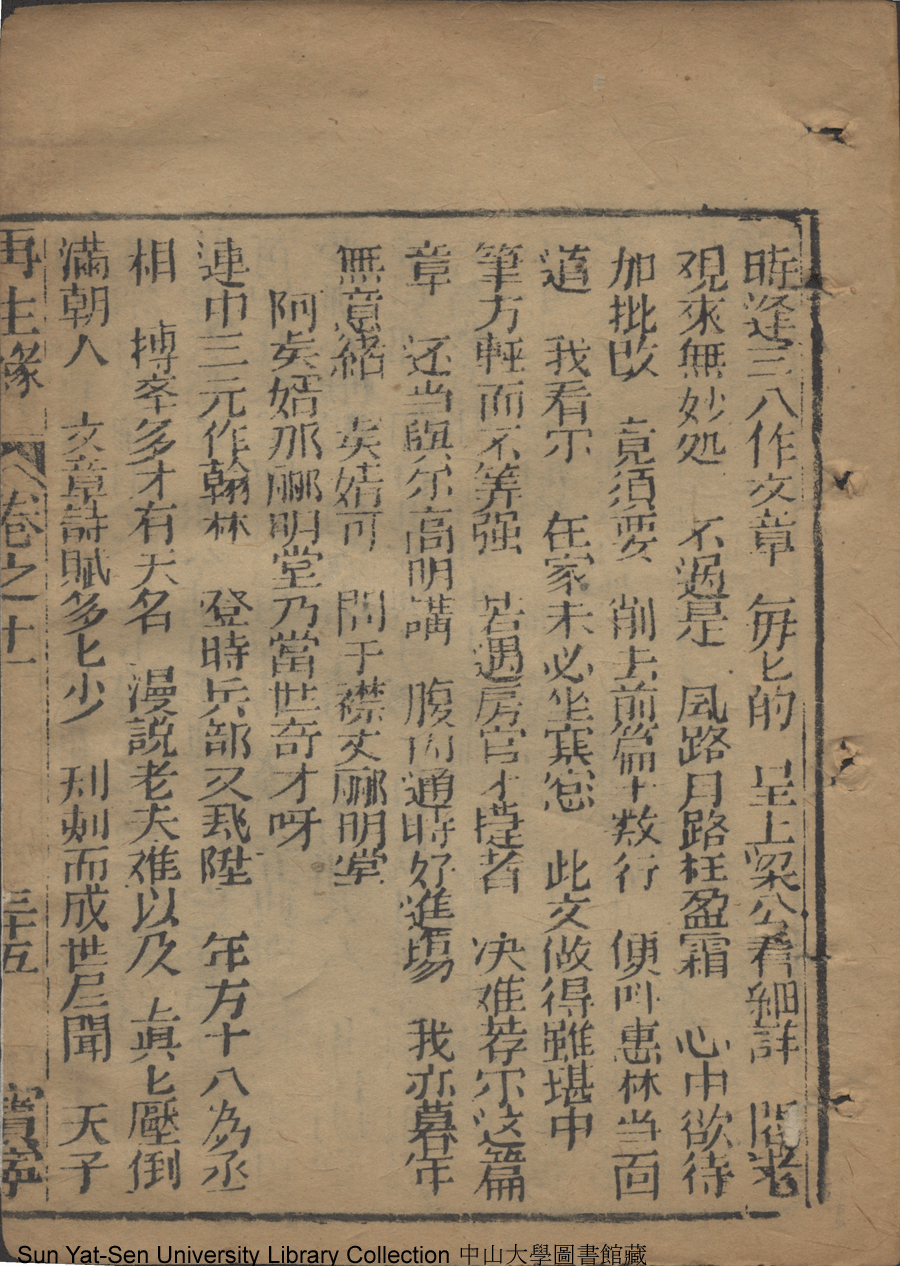 時逢三八作文章　每匕的　呈上梁公看細詳　閣老
观來無妙処　不過是　風路月路枉盈霜　心中欲待
加批改　竟須要　削去前篇十数行　便叫惠林当面
道　我看尔　在家未必坐寒窓　此文做得雖堪中
筆力輕而不筭强　若遇房官才捷者　决难荐尔这篇
章　还当與尔高明講　腹内通時好進場　我亦暮年
無意緒　矣婿可　問于襟丈郦明堂
阿矣婿那郦明堂乃當世奇才呀
連中三元作翰林　登時兵部又飛陞　年方十八為丞
相　搏夲多才有天名　漫説老夫难以及　眞匕壓倒
滿朝人　文章詩賦多匕少　刑刺而成世尽聞　天子
再生縁　卷之十一　三十五　寳寧
Sun Yat-Sen University Library Collection 中山大學圖書館藏